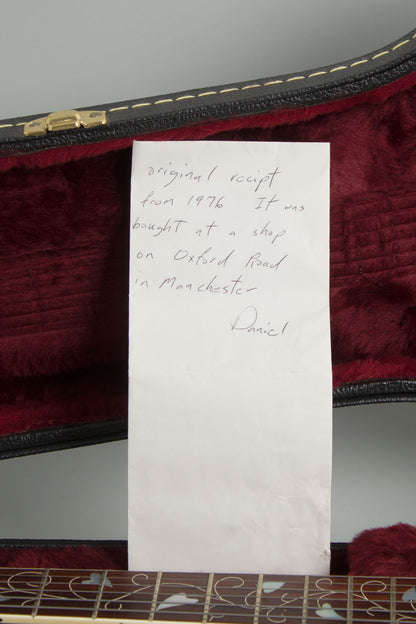 original recipt
from 1976 It was
bought at a shop
on Oxford Road
in Manchester
Daniel